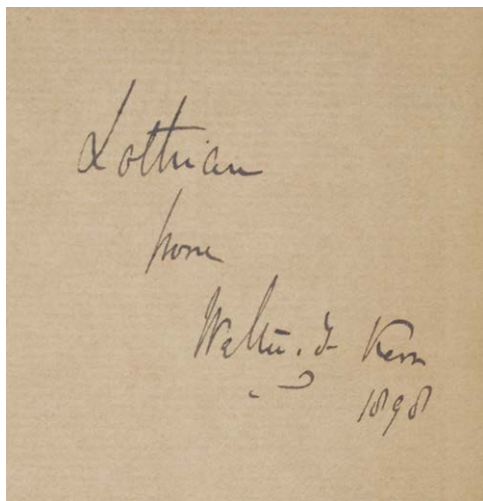 Lothian
from
Walter. F Kerr
1898